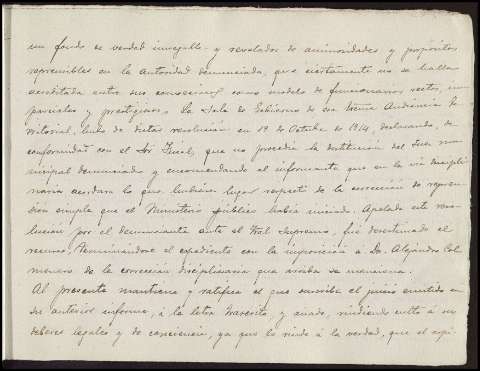 un fondo de verdad innegable y revelador de animosidades y propósitos
reprensibles en la autoridad denunciada, que ciertamente no se halla
acreditada entre sus convecinos como modelo de funcionarios rectos, im-
parciales y prestigiosos, la Sala de Gobierno de esa Excma Audiencia Te-
rritorial, hubo de dictar resolución en 19 de Octubre de 1914, declarando, de
conformidad con el Sr Fiscal, que no procedía la destitución del Juez mu-
nicipal denunciado y encomendando al informante que en la vía discipli-
naria acordara lo que hubiere lugar respecto de la corrección de repren-
sión simple que el Ministerio público había iniciado. Apelada esta reso-
lución por el denunciante ante el Tral Supremo, fué desestimado el
recurso, terminándose el expediente con la imposición a D. Alejandro Col
menero de la corrección disciplinaria que arriba se menciona.
Al presente mantiene y ratifica el que suscribe el juicio emitido en
su anterior informe, á la letra trascrito, y añade, rindiendo culto á sus
deberes legales y de conciencia, ya que lo rinde á la verdad, que el espí-